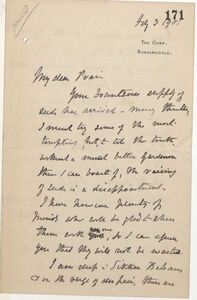 171
July 3 1901
THE CAMP,
SUNNINGDALE.
My dear Prain
Your bounteous supply of
seeds has arrived - many thanks
I must try some of the most
tempting, but, to tell the truth,
without a much better gardener
than I can boast of, the raising
of seeds is a disappointment.
I have however plenty of
friends who will be glad to share
them with me, so I can assure
you that they will not be wasted.
I am deep in Sikkim Balsams
& on the verge of despair, there are